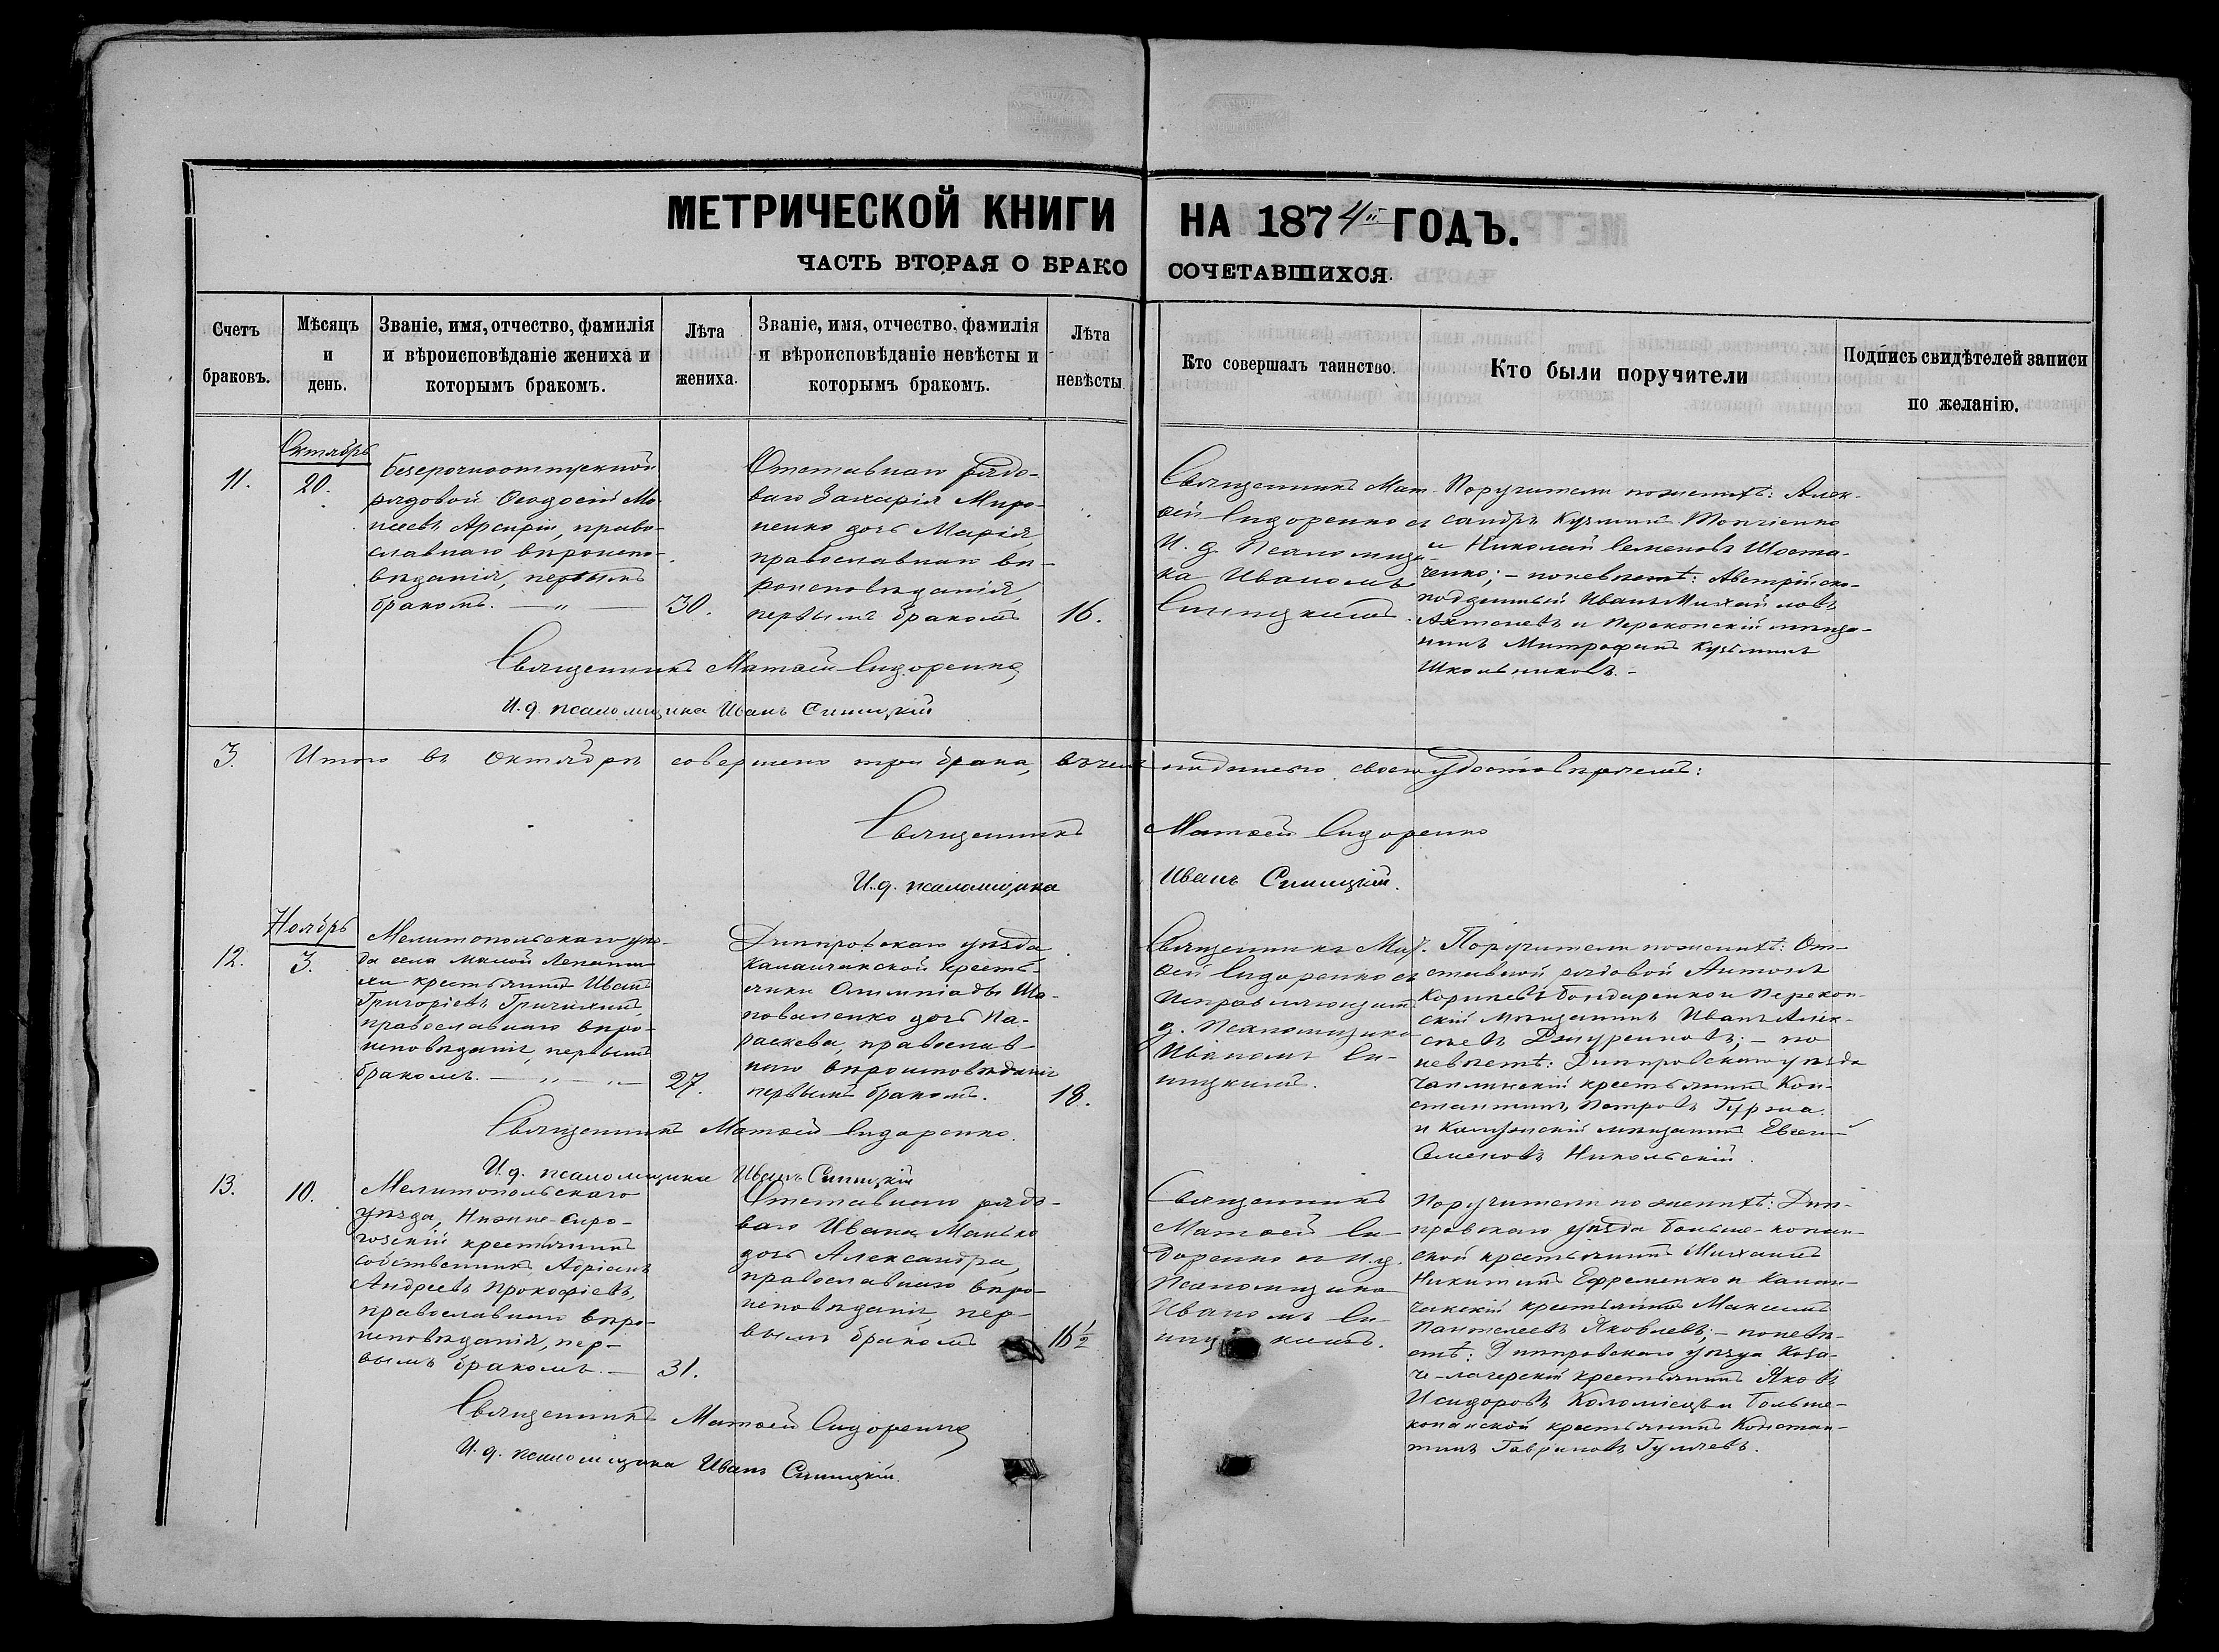 МЕТРИЧЕСКОЙ КНИГИ НА 1874й ГОДЪ.
ЧАСТЬ ВТОРАЯ О БРАКОСОЧЕТАВШИХСЯ.
Счетъ браковъ.
Мѣсяцъ и день.
Званіе, имя, отчество, фамилія
и вѣроисповѣданіе жениха и
которымъ бракомъ.
Лѣта жениха.
Званіе, имя, отчество, фамилія
и вѣроисповѣданіе невѣсты и
которымъ бракомъ.
Лѣта невѣсты
Кто совершалъ таинство.
Кто были поручители
Подпись свидѣтелей записи
по желанію.
11.
Октябрь
20.
Безсрочноотпускной
рядовой Ѳеодосій Мо-
исеевъ право-
славнаго вѣроиспо-
вѣданія, первымъ
бракомъ.
30.
Отставнаго рядо-
ваго Захарія Миро-
ненко дочь Марія,
православнаго вѣ-
роисповѣданія,
первымъ бракомъ
16.
Священникъ Мат-
ѳей Сидоренко съ
И. д. Псаломщи-
ка Иваномъ
Синицкимъ.
Поручители по женихѣ: Алек-
сандръ Кузминъ
и Николай Семеновъ Шоста-
ченко; - по невѣстѣ: Австрійско-
подданный Иванъ Михайловъ
и Перекопскій мѣща-
нинъ Митрофанъ Кузьминъ
Школьниковъ. -
Священникъ Матѳей Сидоренко
И. д. псаломщика Иванъ Синицкій
3. Итого въ Октябрѣ совершено три брака, въ чемъ подписью своею удостовѣряемъ:
Священникъ Матѳей Сидоренко
И. д. псаломщика Иванъ Синицкій.
12.
Ноябрь
3.
Мелитопольскаго уѣз-
да села Малой Лепати-
хи крестьянинъ Иванъ
Григоріевъ
православнаго вѣро-
исповѣданія, первымъ
бракомъ.
27.
Днѣпровскаго уѣзда
Каланчакской кресть-
янки Олимпіады Ша-
поваленко дочь Па-
раскева, православ-
наго вѣроисповѣданія
первымъ бракомъ.
18.
Священникъ Мат-
ѳей Сидоренко съ
Исправляющимъ
д. Псаломщика
Иваномъ Си-
ницкимъ.
Поручители по женихѣ: От-
ставной рядовой Антонъ
Бондаренко и Перекоп-
скій мѣщанинъ Иванъ Алек-
сѣевъ - по
невѣстѣ: Днѣпровскаго уѣзда
чаплинскій крестьянинъ Кон-
стантинъ Петровъ
и мѣщанинъ
Семеновъ Никольскій.
Священникъ Матѳей Сидоренко.
И. д. псаломщика Иванъ Синицкій
13.
10.
Мелитопольскаго
уѣзда, Нижне-Сиро-
гозскій крестьянинъ
собственникъ Адріанъ
Андреевъ Прокофіевъ,
православнаго вѣро-
исповѣданія, пер-
вымъ бракомъ. -
31.
Отставнаго рядо-
ваго Ивана Манько
дочь Александра,
православнаго вѣро-
исповѣданія, пер-
вымъ бракомъ
16½
Священникъ
Матѳей Си-
доренко съ И. д.
Псаломщика
Иваномъ Си-
ницкимъ.
Поручители по женихѣ: Днѣ-
провскаго уѣзда Больше-копан-
ской крестьянинъ Михаилъ
Никитинъ Ефременко и Калан-
чакскій крестьянинъ Максимъ
Пантелеевъ Яковлевъ; - по невѣ-
стѣ: Днѣпровскаго уѣзда Коза-
че-лагерскій крестьянинъ Яковъ
Исидоровъ Коломіецъ и Больше-
копанской крестьянинъ Констан-
тинъ Гавриловъ Гуляевъ.
Священникъ Матѳей Сидоренко
И. д. псаломщика Иванъ Синицкій.